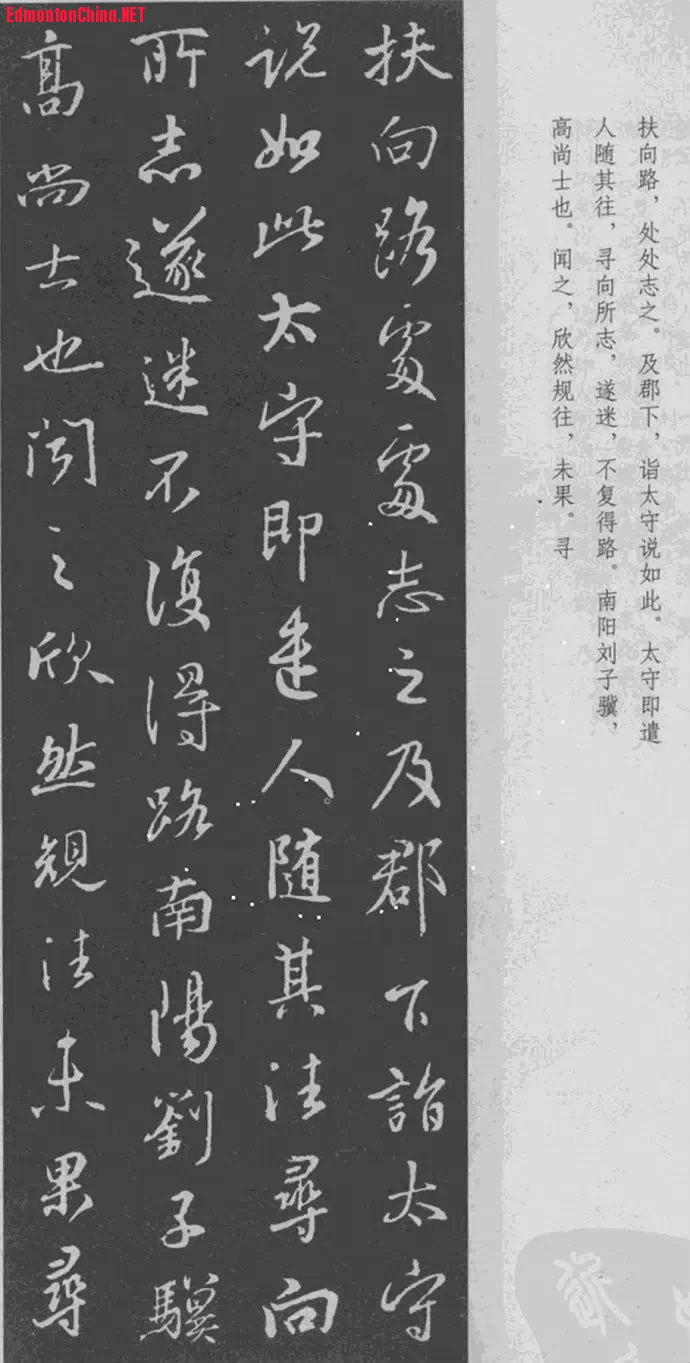 EdmontonChina.NET
扶向路處處志之及郡下詣太守
说如此太守即遣人随其往尋向
所志遂迷不復得路南陽劉子驥
高尚士也聞之欣然規往未果尋
扶向路，处处志之。及郡下，诣太守说如此。太守即遣
人随其往，寻向所志，遂迷，不复得路。南阳刘子骥，
高尚士也。闻之，欣然规往，未果。寻